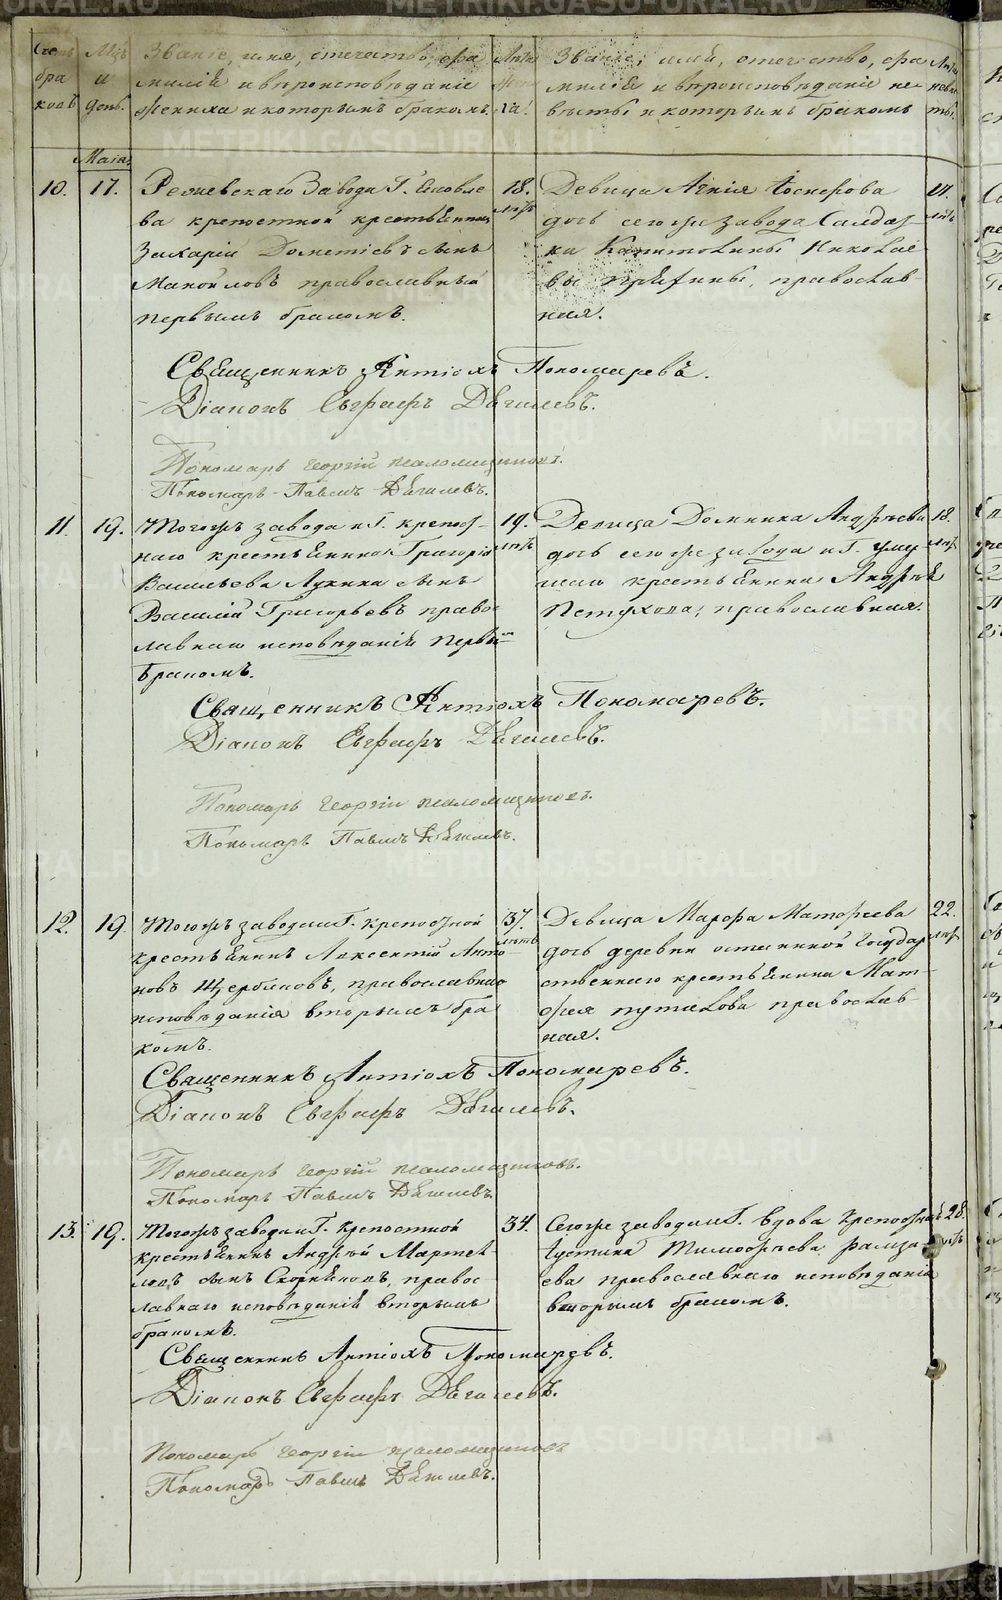 Счетъ браковъ
Мцъ и день.
Званіе, имя, отечество, фамилія и вѣроисповѣданіе
жениха и которымъ бракомъ.
Лѣта жениха.
Званіе, имя, отечество, фамилія и вѣроисповѣданіе невѣсты и которымъ бракомъ
Лѣта невѣсты.
Маія.
10. 17.
Режевскаго Завода Г. Яковле
ва крепостной крестьянинъ
Захарій Дометіевъ сынъ
Маноиловъ православный
первымъ бракомъ.
18. лѣтъ
Девица Агнія
дочь сего же завода Салдат
ки Капитолины Николае
вы, православ
ная.
21. лѣтъ
Священникъ Антіохъ Пономаревъ.
Діаконъ Евграфъ Дягилевъ.
Пономарь Георгій
Пономарь Павелъ Дягилевъ.
11. 19.
Тогожъ завода и Г. крепост
наго крестьянина Григорія
Васильева Лукина сынъ
Василій Григорьевъ право
славнаго исповѣданія первымъ
бракомъ.
19. лѣтъ
Девица Домника Андрѣева
дочь сего же завода и Г. умер
шаго крестьянина Андрея
Петухова, православная.
18. лѣтъ
Священникъ Антіохъ Пономаревъ.
Діаконъ Евграфъ Дягилевъ.
Пономарь Георгій
Пономарь Павелъ Дягилевъ.
12. 19.
Тогожъ завода и Г. крепостной
крестьянинъ Авксентій Анто
новъ Щербаковъ, православнаго
исповѣданія вторымъ бра
комъ.
37. лѣтъ
Девица Мавра Матфеева
дочь деревни Государ
ственнаго крестьянина Мат
фея Путилова православ
ная.
22. лѣтъ
Священникъ Антіохъ Пономаревъ.
Діаконъ Евграфъ Дягилевъ.
Пономарь Георгій
Пономарь Павелъ Дягилевъ
13. 19.
Тогожъ завода и Г. крепостной
крестьянинъ Андрей Мартемья
новъ сынъ, правос
лавнаго исповѣданія вторымъ
бракомъ.
34.
Сего же завода и Г. вдова крепостная
Іустина Тимофеева
ева православнаго исповѣданія
вторымъ бракомъ.
28. лѣтъ
Священникъ Антіохъ Пономаревъ.
Діаконъ Евграфъ Дягилевъ.
Пономарь Георгій
Пономарь Павелъ Дягилевъ.
METRIKI.GASO-URAL.RU